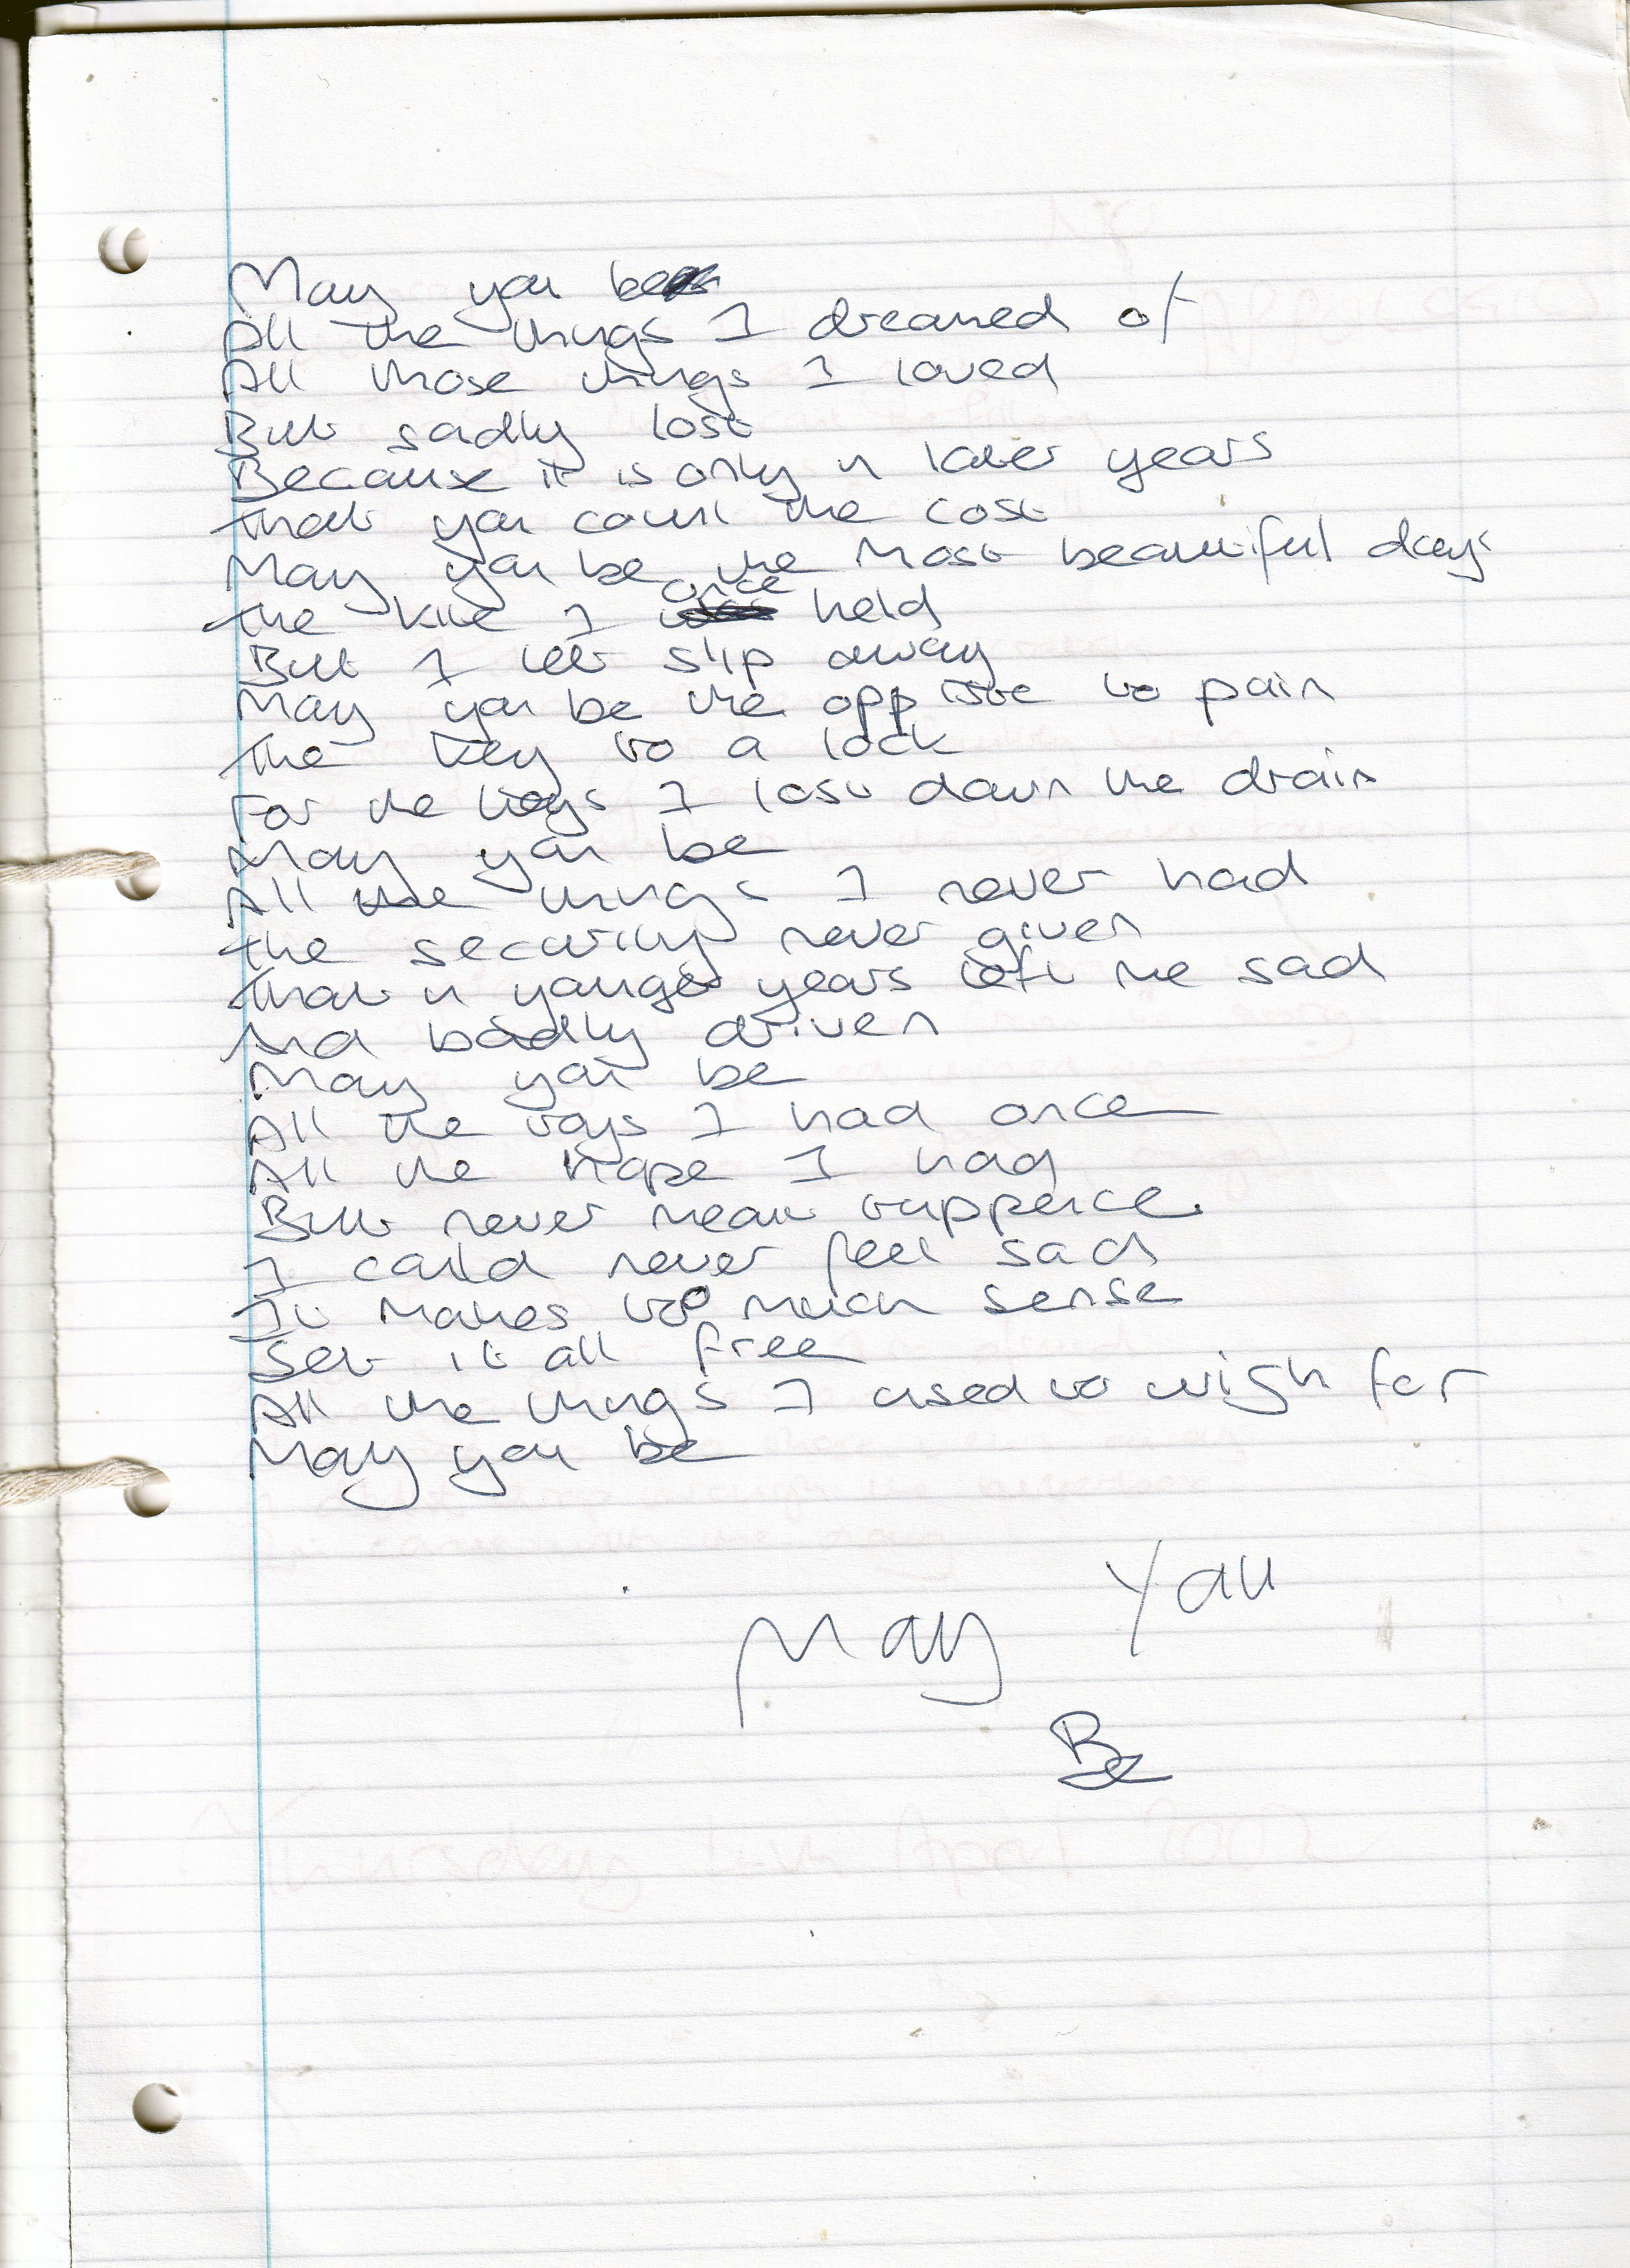 May you be
All the things I dreamed of
All those things I loved
But sadly lost
Because it is only in later years
That you count the cost
May you be the most beautiful days
The kite I once held
But I let slip away
May you be the oppisite to pain
The key to a lock
For the keys I lost down the drain
May you be
All the things I never had
The security never given
That in younger years left me sad
And badly driven
May you be
All the toys I had once
All the hope I had
But never meant tuppence
I could never feel sad
It makes too much sense
Set it all free
All the things I used to wish for
May you be
May You
Be
Thursday April 2002